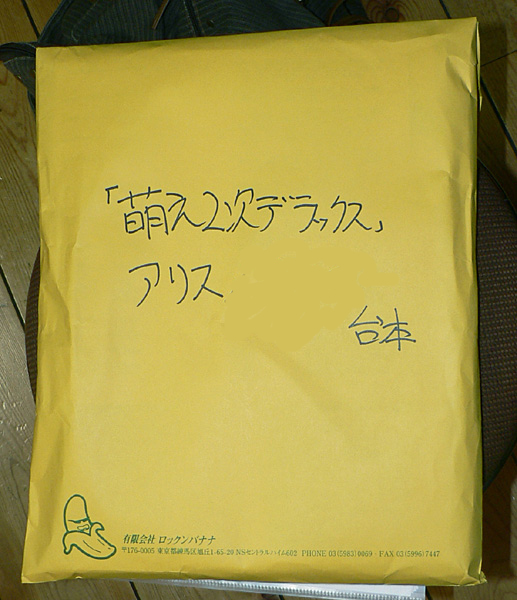 「萌え2次デラックス」
アリス
台本
有限会社 ロックンバナナ
〒176-0005 東京都練馬区旭丘1-65-20 NSセントラルハイム602 PHONE 03(5983)0069・FAX 03(5996)7447